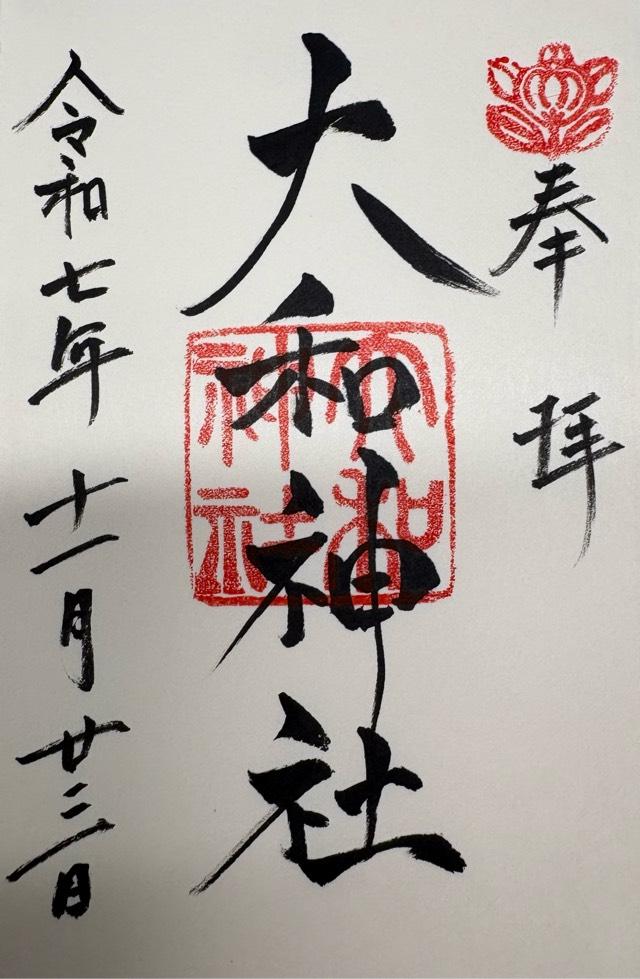 奉拝
大和神社
大和
神社
令和七年十一月廿三日